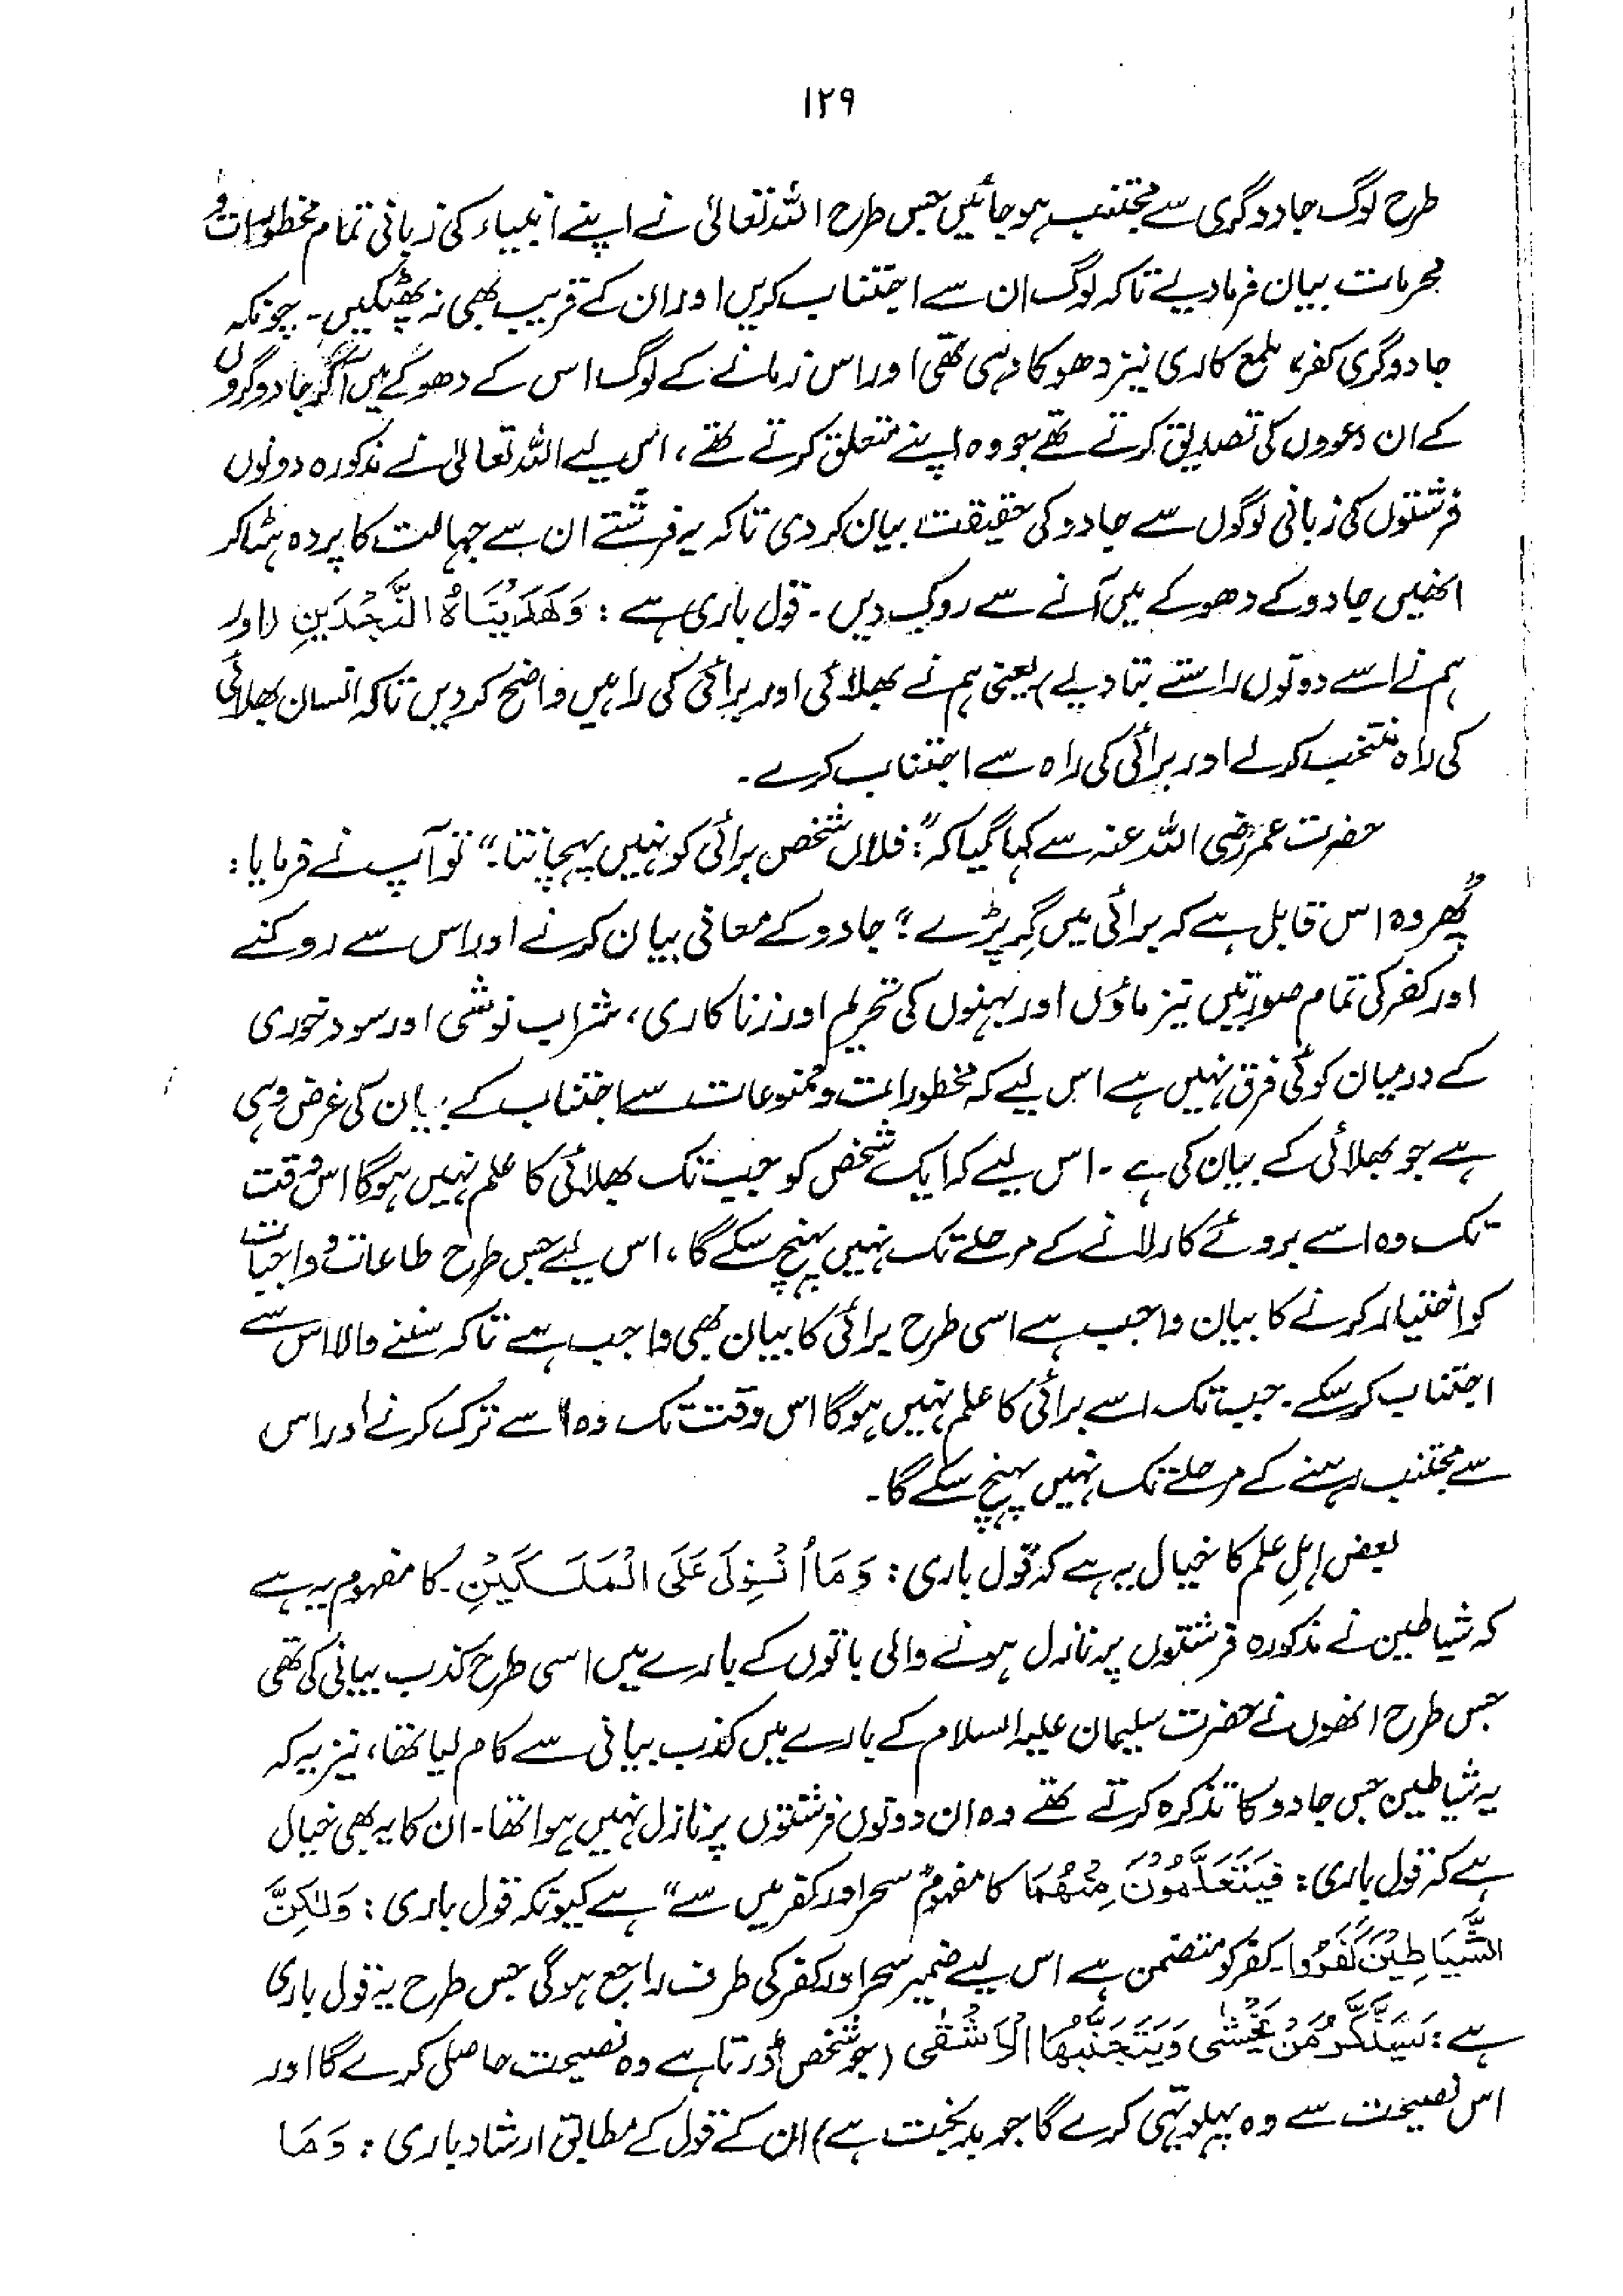 ۱۲۹
طرح لوگ جادوگری سے مجتنب ہو جائیں جس طرح اللہ تعالیٰ نے اپنے انبیاء کی زبانی تمام محظورات و
محرمات بیان فرما دیے تاکہ لوگ ان سے اجتناب کریں اور ان کے قریب بھی نہ پھٹکیں۔ چونکہ
جادوگری کفر، ملمع کاری نیز دھوکا دہی تھی اور اس زمانے کے لوگ اس کے دھوکے میں آکر جادوگروں
کے ان دعووں کی تصدیق کرتے تھے جو وہ اپنے متعلق کرتے تھے، اس لیے اللہ تعالیٰ نے مذکورہ دونوں
فرشتوں کی زبانی لوگوں سے جادو کی حقیقت بیان کر دی تاکہ یہ فرشتے ان سے جہالت کا پردہ ہٹا کر
انھیں جادو کے دھوکے میں آنے سے روک دیں۔ قول باری ہے : وَهَدَيْنَاهُ النَّجْدَيْنِ (اور
ہم نے اسے دونوں راستے بتا دیے) یعنی ہم نے بھلائی اور برائی کی راہیں واضح کر دیں تاکہ انسان بھلائی
کی راہ منتخب کر لے اور برائی کی راہ سے اجتناب کرے۔
حضرت عمر رضی اللہ عنہ سے کہا گیا کہ: "فلاں شخص برائی کو نہیں پہچانتا۔" تو آپ نے فرمایا :
"پھر وہ اس قابل ہے کہ برائی میں گر پڑے" جادو کے معانی بیان کرنے اور اس سے روکنے
اور کفر کی تمام صورتیں نیز ماؤں اور بہنوں کی تحریم اور زنا کاری، شراب نوشی اور سود خوری
کے درمیان کوئی فرق نہیں ہے اس لیے کہ محظورات و ممنوعات سے اجتناب کے بیان کی غرض وہی
ہے جو بھلائی کے بیان کی ہے۔ اس لیے کہ ایک شخص کو جب تک بھلائی کا علم نہیں ہوگا اس وقت
تک وہ اسے بروئے کار لانے کے مرحلے تک نہیں پہنچ سکے گا، اس لیے جس طرح طاعات و واجبات
کو اختیار کرنے کا بیان واجب ہے اسی طرح برائی کا بیان بھی واجب ہے تاکہ سننے والا اس سے
اجتناب کر سکے۔ جب تک اسے برائی کا علم نہیں ہوگا اس وقت تک وہ اسے ترک کرنے اور اس
سے مجتنب رہنے کے مرحلے تک نہیں پہنچ سکے گا۔
بعض اہلِ علم کا خیال یہ ہے کہ قول باری : وَمَا أُنْزِلَ عَلَى الْمَلَكَيْنِ۔ کا مفہوم یہ ہے
کہ شیاطین نے مذکورہ فرشتوں پر نازل ہونے والی باتوں کے بارے میں اسی طرح کذب بیانی کی تھی
جس طرح انھوں نے حضرت سلیمان علیہ السلام کے بارے میں کذب بیانی سے کام لیا تھا، نیز یہ کہ
یہ شیاطین جس جادو کا تذکرہ کرتے تھے وہ ان دونوں فرشتوں پر نازل نہیں ہوا تھا۔ ان کا یہ بھی خیال
ہے کہ قول باری : فَيَتَعَلَّمُوْنَ مِنْهُمَا کا مفہوم "سحر اور کفر میں سے" ہے کیونکہ قول باری : وَلٰكِنَّ
الشَّيَاطِيْنَ كَفَرُوا۔ کفر کو متضمن ہے اس لیے ضمیر سحر اور کفر کی طرف راجع ہوگی جس طرح یہ قول باری
ہے : سَيَذَّكَّرُ مَنْ يَّخْشٰى وَيَتَجَنَّبُهَا الْاَشْقٰى (جو شخص ڈرتا ہے وہ نصیحت حاصل کرے گا اور
اس نصیحت سے وہ پہلوتہی کرے گا جو بدبخت ہے) ان کے قول کے مطابق ارشاد باری : وَمَا